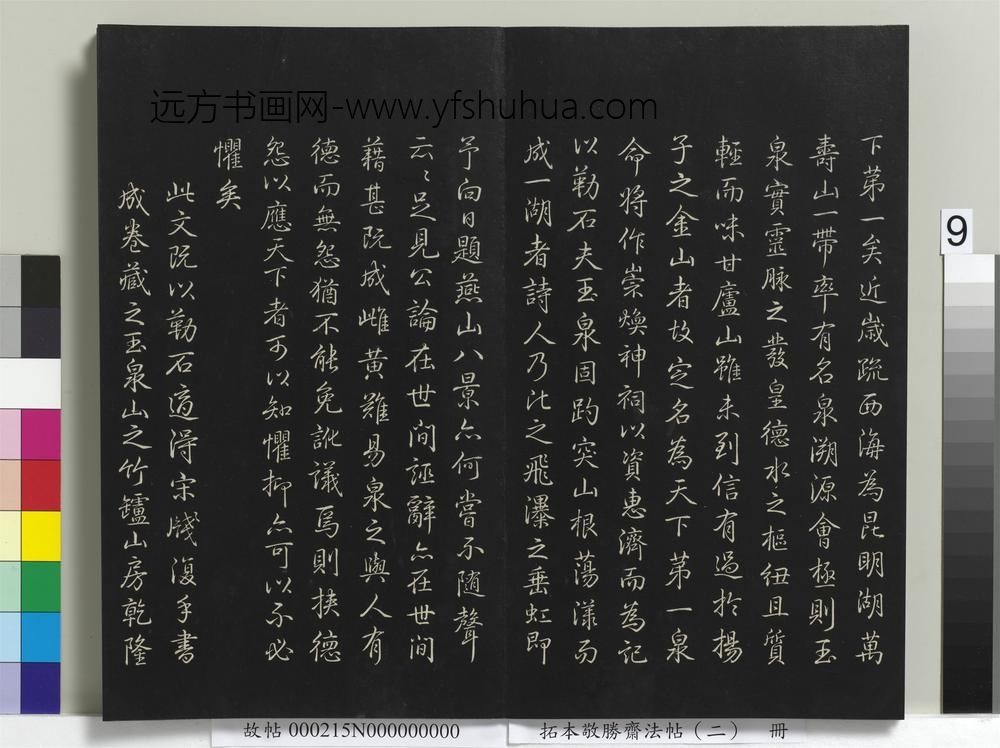 远方书画网-www.yfshuhua.com
下苐一矣近嵗疏西海為昆明湖萬
壽山一帶率有名泉溯源會極則玉
泉實靈脉之發皇德水之樞紐且質
輕而味甘廬山雖未到信有過於揚
子之金山者故定名為天下苐一泉
命將作崇煥神祠以資惠濟而為記
以勒石夫玉泉固趵突山根蕩漾而
成一湖者詩人乃比之飛瀑之垂虹即
予向日題燕山八景亦何嘗不隨聲
云〻足見公論在世間誣辭亦在世間
藉甚既成雌黄難易泉之與人有
德而無怨猶不能免訛議焉則挾德
怨以應天下者可以知懼抑亦可以不必
懼矣
此文既以勒石適得宋牋復手書
成卷藏之玉泉山之竹鑪山房乾隆
9
故帖 000215N000000000
拓本敬勝齋法帖（二） 冊